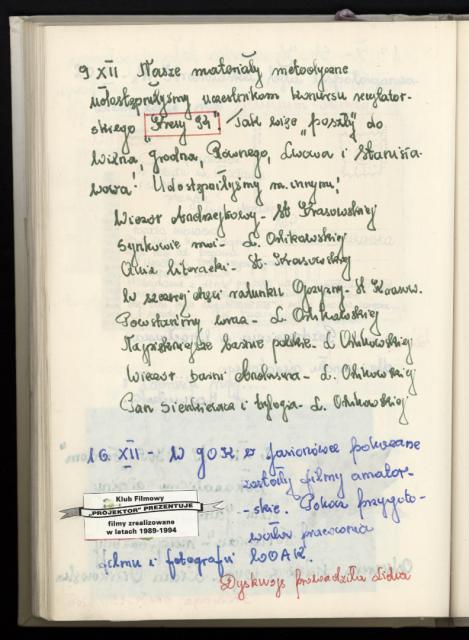 9 XII Nasze materiały metodyczne
udostępniłyśmy uczestnikom konkursu recytator-
skiego "Kresy 94" Tak więc "poszły" do
Wilna, Grodna, Równego, Lwowa i Stanisła-
wowa! Udostępniłyśmy m.innymi:
Wieczór Andrzejkowy - St Krasowskiej
Synkowie moi - L. Ossikowskiej
St. Krasowskiej
W szczerej chęci ratunku Ojczyzny - St Krasow.
Powstańmy wraz - L.
Najpiękniejsze baśnie polskie - L.
Wieczór baśni Andersena - L.
Pan Sienkiewicz i trylogia - L.
16. XII - W GOK w Jasionówce pokazane
zostały filmy amator-
-skie. Pokaz przygoto-
wała pracownia
filmu i fotografii WOAK.
Dyskusję prowadziła Lidka
Klub Filmowy
„PROJEKTOR” PREZENTUJE
filmy zrealizowane
w latach 1989-1994